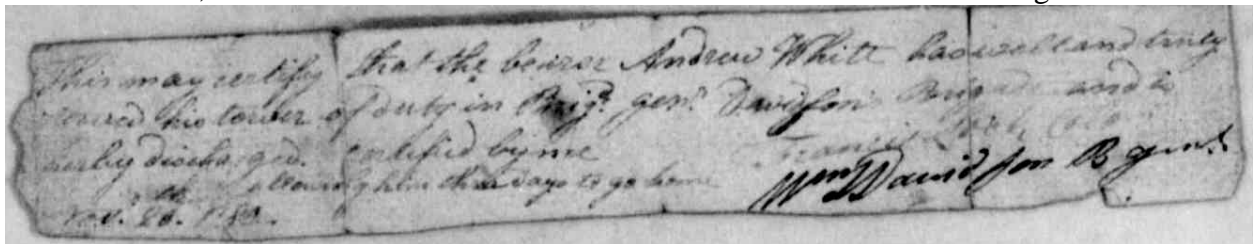 This may certify that the bearer Andrew Whitt has well and truly
served his tower of duty in Brigr. genl. Davidson's Brigade and is
hereby discharged. Certified by me Francis Lock, Colo.
allowing him three days to go home Wm. Davidson B genl.
Novr. 26th. 1780.